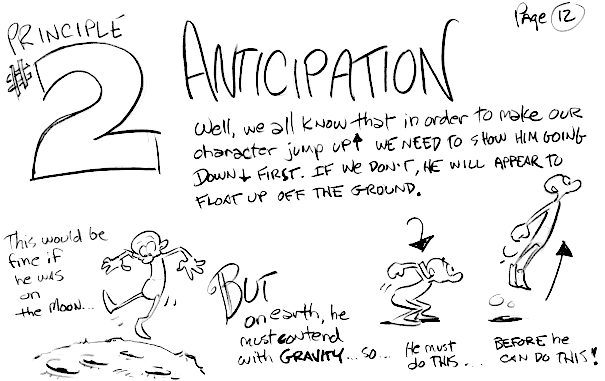 Page 12
PRINCIPLE
#2
ANTICIPATION
Well, we all KNOW that in order to make our
character jump up↑ WE NEED to SHOW HIM GOING
DOWN↓ FIRST. IF WE DON'T, HE WILL APPEAR TO
FLOAT UP OFF THE GROUND.
This would be
fine if
he was
on
the moon...
BUT
on earth, he
must contend
with GRAVITY... so...
He must
do THIS...
BEFORE he
CAN DO THIS!